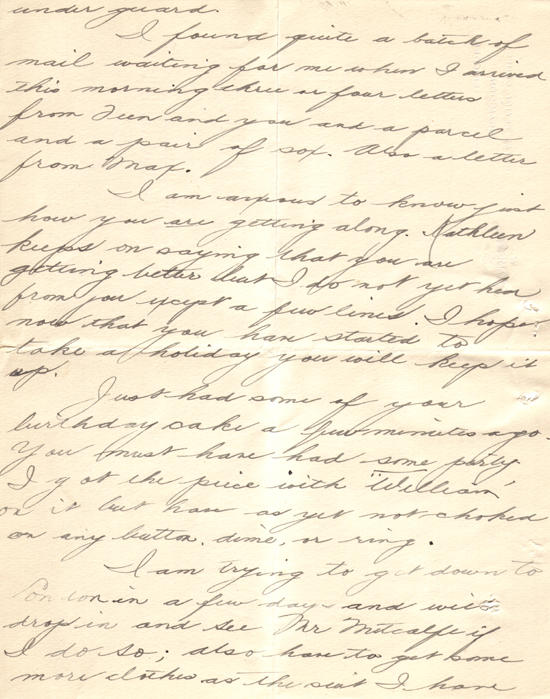 under guard.
I found quite a batch of
mail waiting for me when I arrived
this morning three or four letters
from and you and a parcel
and a pair of sox. Also a letter
from Max.
I am anxious to know just
how you are getting along. Kathleen
keeps on saying that you are
getting better but I do not yet hear
from you except a few lines. I hope
now that you have started to
take a holiday you will keep it
up.
Just had some of your
birthday cake a few minutes ago.
You must have had some party
I got the piece with "William"
on it but have as yet not choked
on any button, dime, or ring.
I am trying to get down to
London in a few days and will
drop in and see Mr Metcalfe if
I do so; also have to get some
more clothes as the suit I have